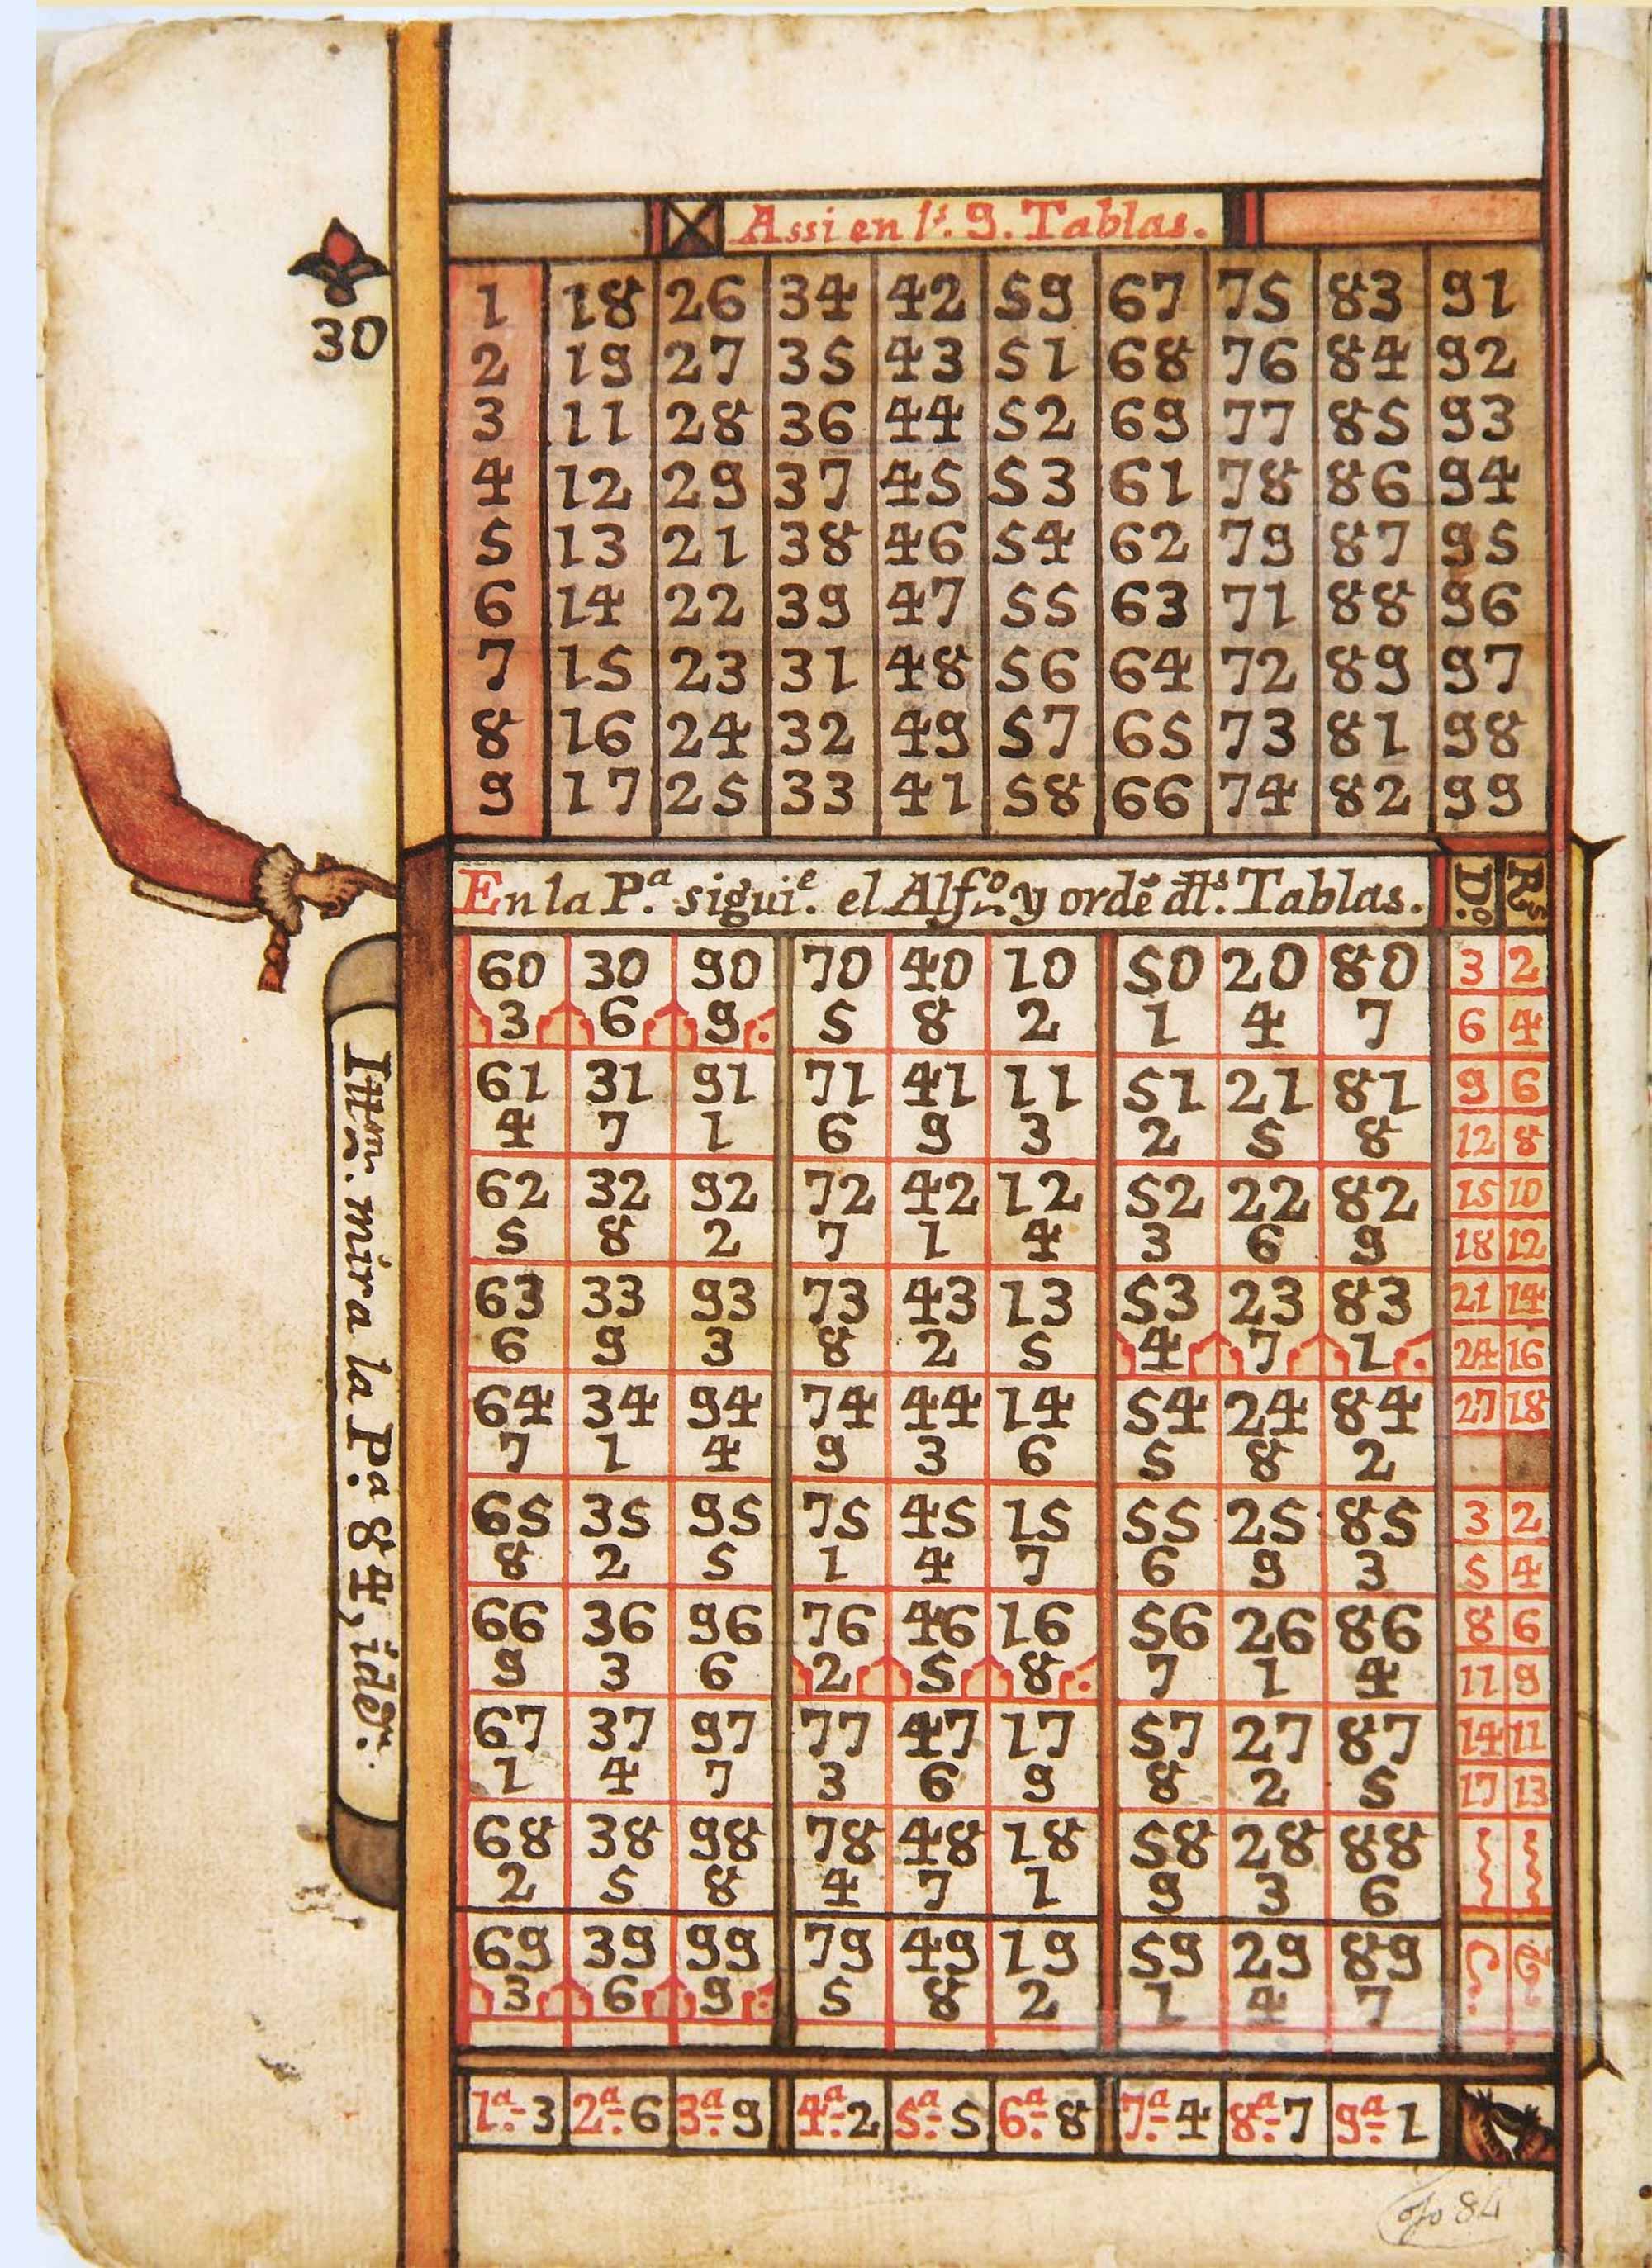 Assi en l.s 9. Tablas.
30
1 18 26 34 42 59 67 75 83 91
2 19 27 35 43 51 68 76 84 92
3 11 28 36 44 52 69 77 85 93
4 12 29 37 45 53 61 78 86 94
5 13 21 38 46 54 62 79 87 95
6 14 22 39 47 55 63 71 88 96
7 15 23 31 48 56 64 72 89 97
8 16 24 32 49 57 65 73 81 98
9 17 25 33 41 58 66 74 82 99
En la P.ª sigui.e el Alf.o y ordē Tablas. D.o R.s
60 30 90 70 40 10 50 20 80 3 2
3 6 9. 5 8 2 1 4 7 6 4
61 31 91 71 41 11 51 21 81 9 6
4 7 1 6 9 3 2 5 8 12 8
62 32 92 72 42 12 52 22 82 15 10
5 8 2 7 1 4 3 6 9 18 12
63 33 93 73 43 13 53 23 83 21 14
6 9 3 8 2 5 4 7 1. 24 16
64 34 94 74 44 14 54 24 84 27 18
7 1 4 9 3 6 5 8 2
65 35 95 75 45 15 55 25 85 3 2
8 2 5 1 4 7 6 9 3 5 4
66 36 96 76 46 16 56 26 86 8 6
9 3 6 2 5 8. 7 1 4 11 9
67 37 97 77 47 17 57 27 87 14 11
1 4 7 3 6 9 8 2 5 17 13
68 38 98 78 48 18 58 28 88
2 5 8 4 7 1 9 3 6
69 39 99 79 49 19 59 29 89
3 6 9. 5 8 2 1 4 7
1ª-3 2ª-6 3ª-9 4ª-2 5ª-5 6ª-8 7ª-4 8ª-7 9ª-1
mira la P.ª 84, idē.
fo 84